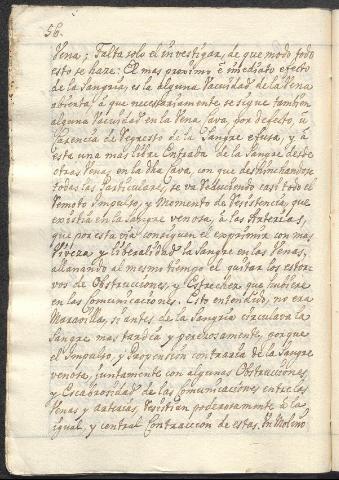 56.
Vena; Falta solo el investigar, de que modo todo
esto se haze: El mas proximo, è imediato efecto
de la Sangria, es la alguna Vacuidad de la Vena
abierta; á que necesariamente se sigue tambien
alguna Vacuidad en la Vena Cava, por defecto, ù
Carencia de Regreso de la Sangre efusa, y á
esta una mas libre Entrada de la Sangre desde
otras Venas en la dha Cava, con que deshinchandose
todas las Particulares, se va Reduciendo casi todo el
Remoto Impulso, y Momento de Resistencia, que
existia en la Sangre venosa, à las Arterias,
que por esta via consiguen el exprimir con mas
Viveza, y liberalidad la Sangre en las Venas,
allanando al mismo tiempo el quitar los estor-
vos de Obstrucciones, y Estrechez que hubiere
en las Comunicaciones. Esto entendido, no era
Maravilla, si antes de la Sangria circulava la
Sangre mas tardia, y perezosamente, porque
el Impulso, y Propension contraria de la Sangre
venosa, juntamente con algunas Obstrucciones,
y Escabrosidad de las Comunicaciones entre las
Venas, y Arterias, Resistian poderosamente à la
igual, y central Contraccion de estas. Un Molino